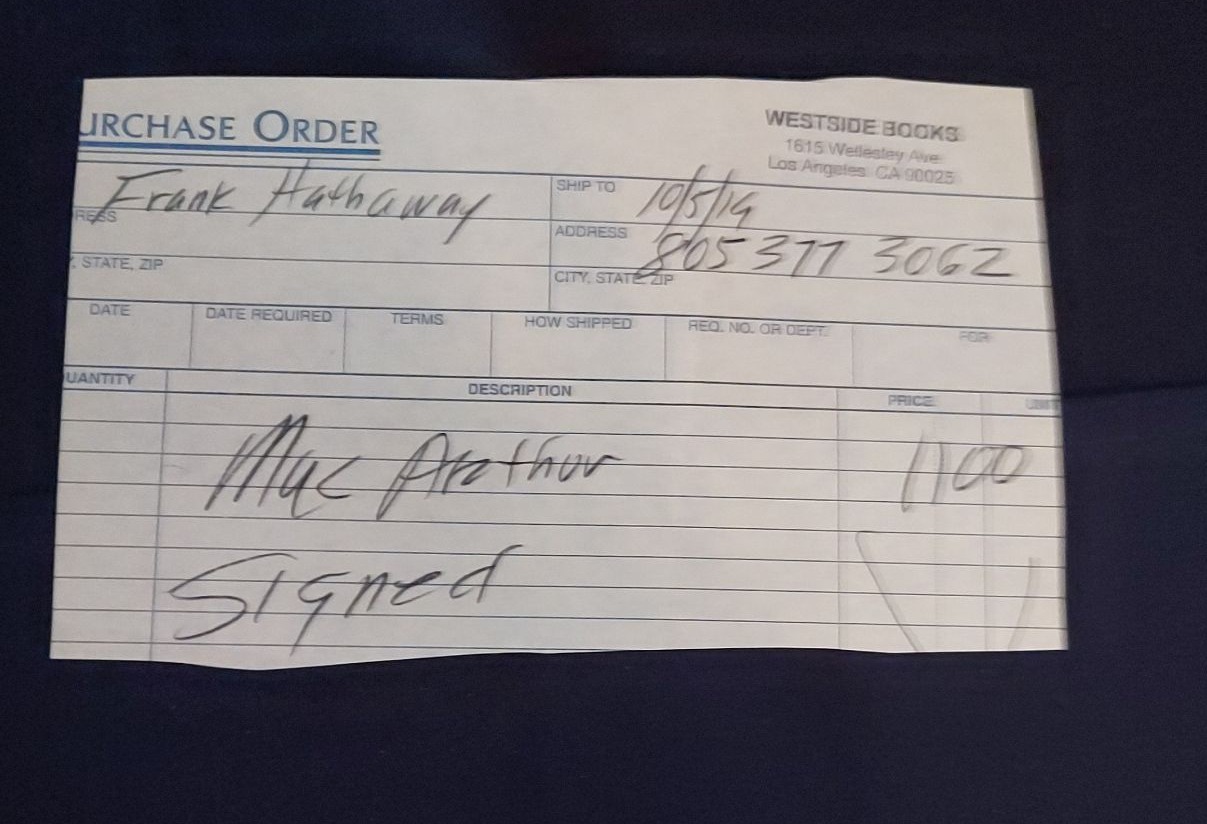 URCHASE ORDER
WESTSIDE BOOKS
1615 Wellesley Ave
Los Angeles, CA 90025
Frank Hathaway
SHIP TO 10/5/19
RESS
ADDRESS 805 377 3062
, STATE, ZIP
CITY, STATE, ZIP
DATE DATE REQUIRED TERMS HOW SHIPPED REQ. NO. OR DEPT. FOR
UANTITY DESCRIPTION PRICE UNIT
Mac Arethur 1100
Signed